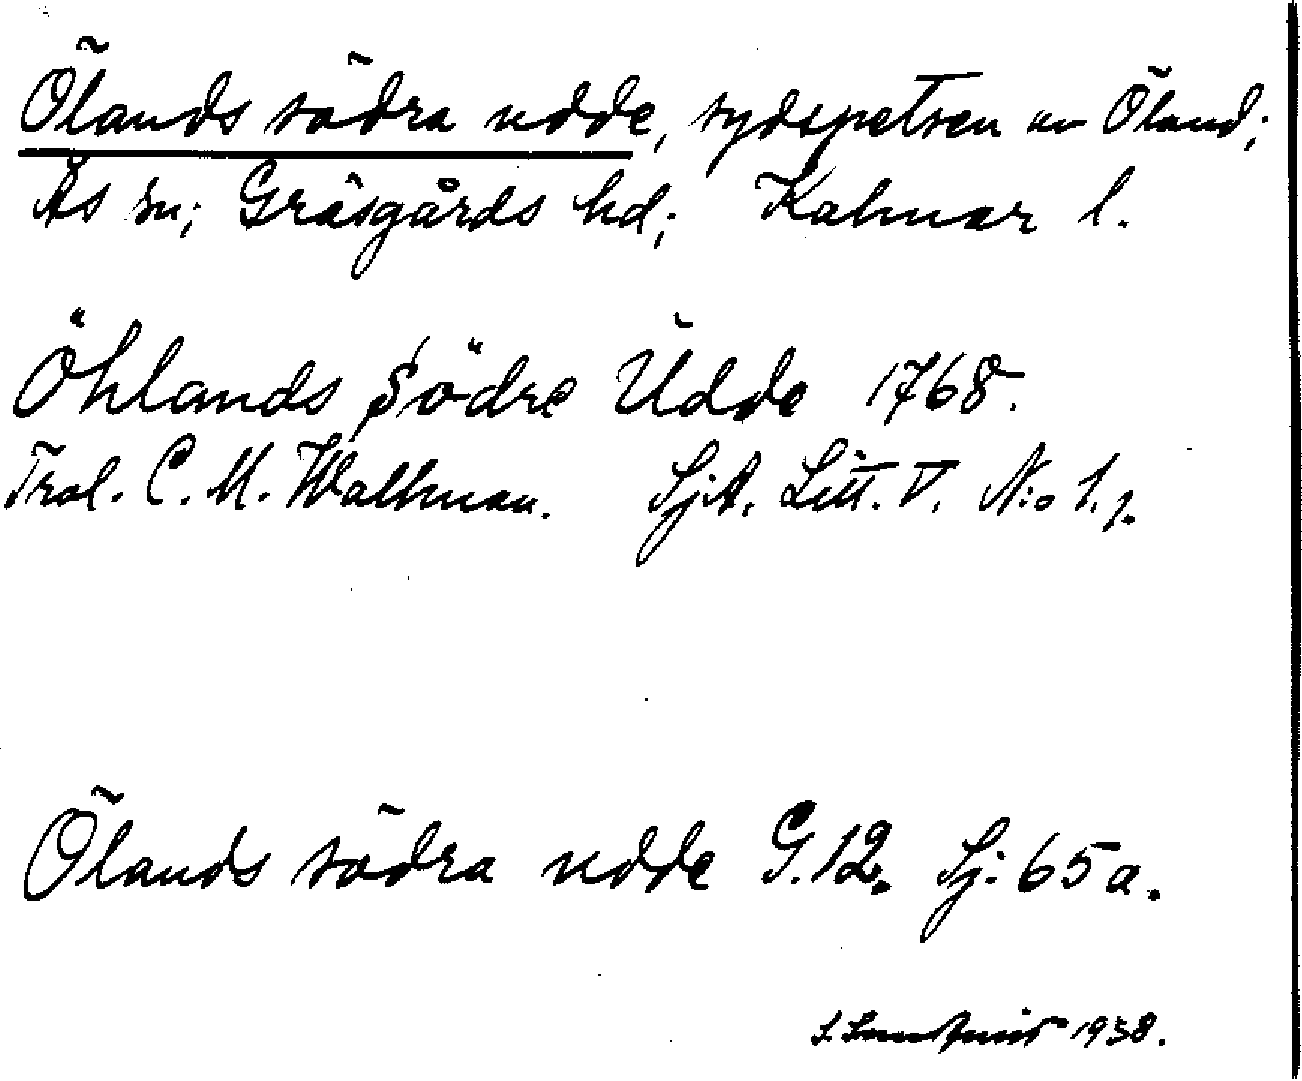 Ölands södra udde, sydspetsen av Öland;
Ås sn; Gräsgårds hd; Kalmar l.
Öhlands Södre Udde 1768.
Trol. C. M. Wallman. SjA. Litt. V. N:o 1.
Ölands södra udde G.12. Sj: 65a.
1938.